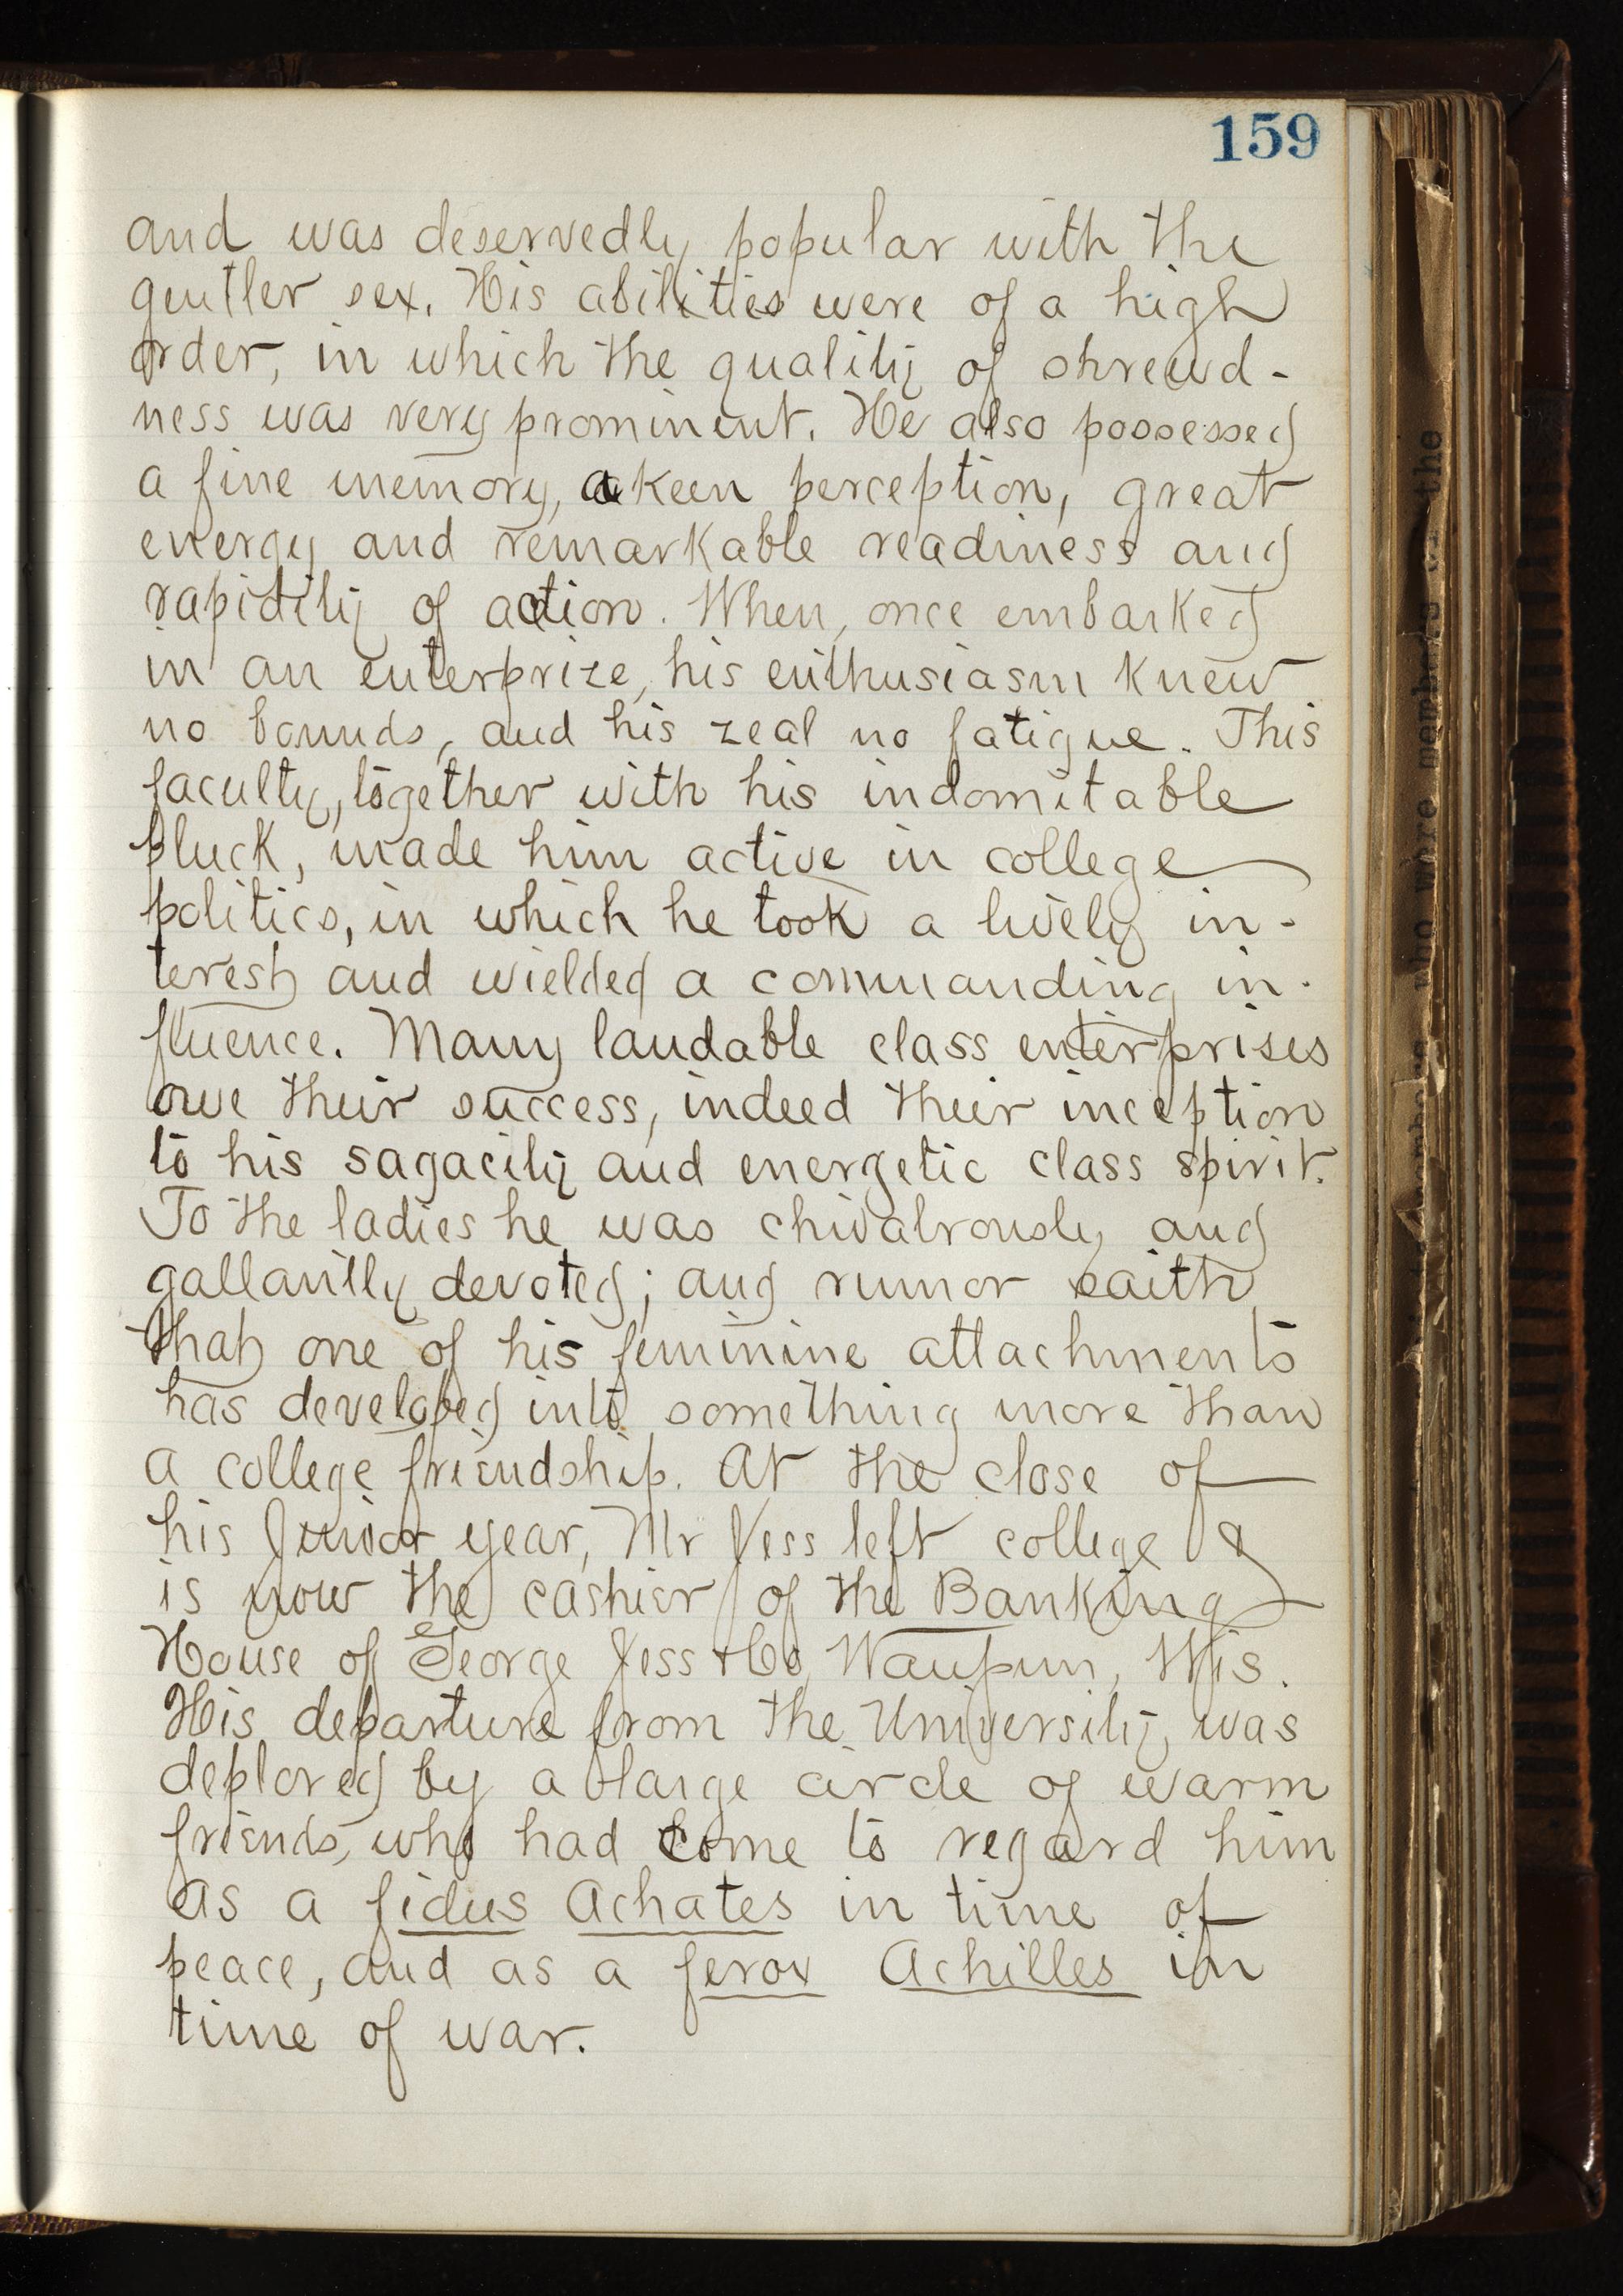 159
and was deservedly popular with the
gentler sex. His abilities were of a high
order, in which the quality of shrewd-
ness was very prominent. He also possessed
a fine memory, a keen perception, great
energy and remarkable readiness and
rapidity of action. When, once embarked
in an enterprize, his enthusiasm knew
no bounds, and his zeal no fatigue. This
faculty, together with his indomitable
pluck, made him active in college
politics, in which he took a lively in-
terest and wielded a commanding in-
fluence. Many laudable class enterprises
owe their success, indeed their inception
to his sagacity and energetic class spirit.
To the ladies he was chivalrously and
gallantly devoted; and rumor saith
that one of his feminine attachments
has developed into something more than
a college friendship. At the close of
his Junior year, Mr Jess left college &
is now the cashier of the Banking
House of George Jess & Co, Waupun, Wis.
His departure from the University was
deplored by a large circle of warm
friends, who had come to regard him
as a fidus Achates in time of
peace, and as a ferox Achilles in
time of war.
who were members of the